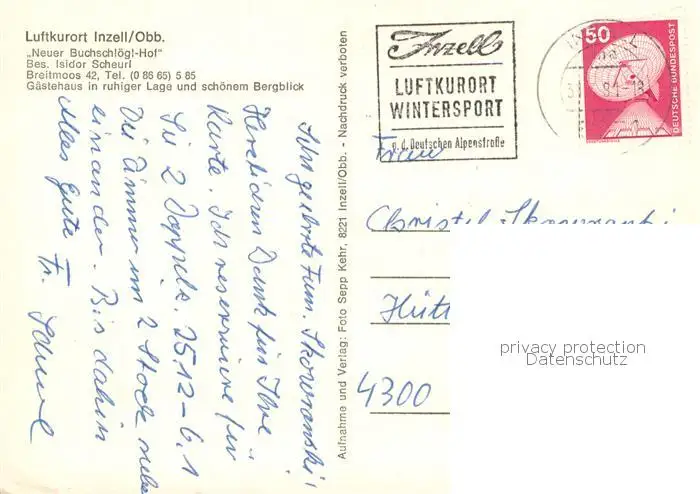 Luftkurort Inzell/Obb.
„Neuer Buchschlögl-Hof"
Bes. Isidor Scheurl
Breitmoos 42, Tel. (0 86 65) 5 85
Gästehaus in ruhiger Lage und schönem Bergblick
Sehr geehrte Fam. Skowranski!
Herzlichen Dank für Ihre
Karte. Ich reserviere für
Sie 2 Doppelz. 25.12-6.1
Die Zimmer im 2 Stock neben
einander. Bis dahin
alles Gute Fr. Scheurl
Aufnahme und Verlag: Foto Sepp Kehr, 8221 Inzell/Obb. - Nachdruck verboten
Inzell
LUFTKURORT
WINTERSPORT
a. d. Deutschen Alpenstraße
50
DEUTSCHE BUNDESPOST
Frau
Christel Skowranski
Hütt
4300
privacy protection
Datenschutz